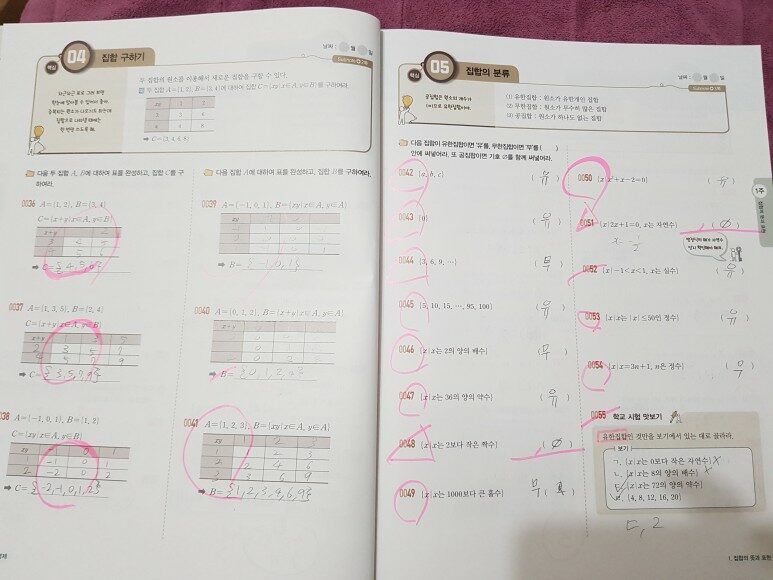 핵심 04 집합 구하기
날짜 : 월 일
두 집합의 원소를 이용해서 새로운 집합을 구할 수 있다.
두 집합 A={1, 2}, B={3, 4}에 대하여 집합 C={xy|x∈A, y∈B}를 구하여라.
xy 1 2
3 3 6
4 4 8
➡ C={3, 4, 6, 8}
다음 두 집합 A, B에 대하여 표를 완성하고, 집합 C를 구
하여라.
0036 A={1, 2}, B={3, 4}
C={x+y|x∈A, y∈B}
x+y 2
3 4 5
5 6
➡ C={4, 5, 6}
0037 A={1, 3, 5}, B={2, 4}
C={x+y|x∈A, y∈B}
x+y 1 3 5
2 3 5 7
4 5 7 9
➡ C={3, 5, 7, 9}
A={-1, 0, 1}, B={1, 2}
C={xy|x∈A, y∈B}
xy -1 0 1
-1 0 1
2 -2 0 2
➡ C={-2, -1, 0, 1, 2}
다음 집합 A에 대하여 표를 완성하고, 집합 B를 구하여라.
0039 A={-1, 0, 1}, B={xy|x∈A, y∈A}
xy
➡ B={-1, 0, 1}
0040 A={0, 1, 2}, B={x+y|x∈A, y∈A}
x+y
➡ B={0, 1, 2,
0041 A={1, 2, 3}, B={xy|x∈A, y∈A}
xy 1 2 3
1 2 3
2 4 6
3 6 9
➡ B={1, 2, 3, 4, 6, 9}
핵심 05 집합의 분류
날짜 : 월 일
공집합은 원소의 개수가
0이므로 유한집합이야.
(1) 유한집합 : 원소가 유한개인 집합
(2) 무한집합 : 원소가 무수히 많은 집합
(3) 공집합 : 원소가 하나도 없는 집합
다음 집합이 유한집합이면 '유'를, 무한집합이면 '무'를 ( )
안에 써넣어라. 또 공집합이면 기호 ∅를 함께 써넣어라.
0042 {a, b, c} ( 유 )
0043 {0} ( 유 )
0044 {3, 6, 9, ⋯} ( 무 )
0045 {5, 10, 15, ⋯, 95, 100} ( 유 )
0046 {x|x는 2의 양의 배수} ( 무 )
0047 {x|x는 36의 양의 약수} ( 유 )
0048 {x|x는 2보다 작은 짝수} ( ∅ )
0049 {x|x는 1000보다 큰 홀수} 무 ( )
0050 {x|x²+x-2=0} ( 유 )
0051 {x|2x+1=0, x는 자연수} ( ∅ )
0052 {x|-1<x<1, x는 실수} ( 유 )
0053 {x|x는 |x|≤50인 정수} ( 유 )
0054 {x|x=3n+1, n은 정수} ( 무 )
0055 학교 시험 맛보기
유한집합인 것만을 보기에서 있는 대로 골라라.
보기
ㄱ. {x|x는 0보다 작은 자연수}
ㄴ. {x|x는 8의 양의 배수}
ㄷ. {x|x는 72의 양의 약수}
ㄹ. {4, 8, 12, 16, 20}
ㄷ, ㄹ
1주
Ⅰ. 집합의 뜻과 표현